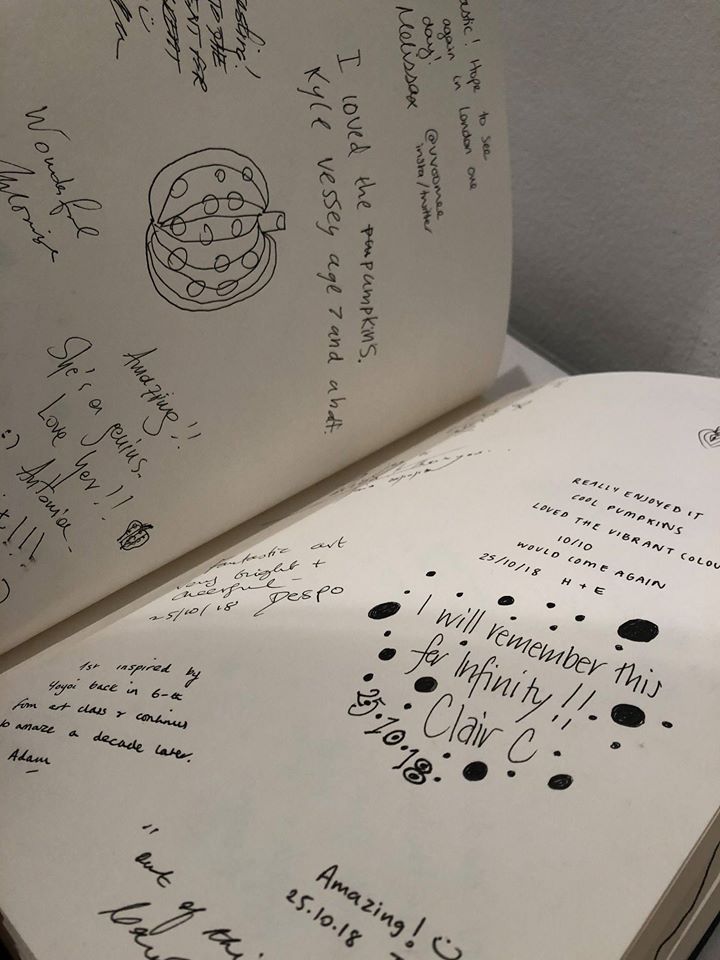 astic! Hope to see
again in London one
day!
Melissax
@vvoomee
insta/twitter
I loved the pumpkins.
Kyle vessey age 7 and a half.
Wonderful
Amazing!!
She's a genius.
Love her!!!
:) Antonia
REALLY ENJOYED IT
COOL PUMPKINS
LOVED THE VIBRANT COLOU
10/10
WOULD COME AGAIN
25/10/18 H + E
fantastic art
very bright +
cheerful -
25/10/18 Despo
I will remember this
for Infinity!!
Clair C
25.10.18
1st inspired by
Yayoi back in 6-th
form art class & continues
to amaze a decade later.
Adam
"out of thi
Amazing! :)
25.10.18